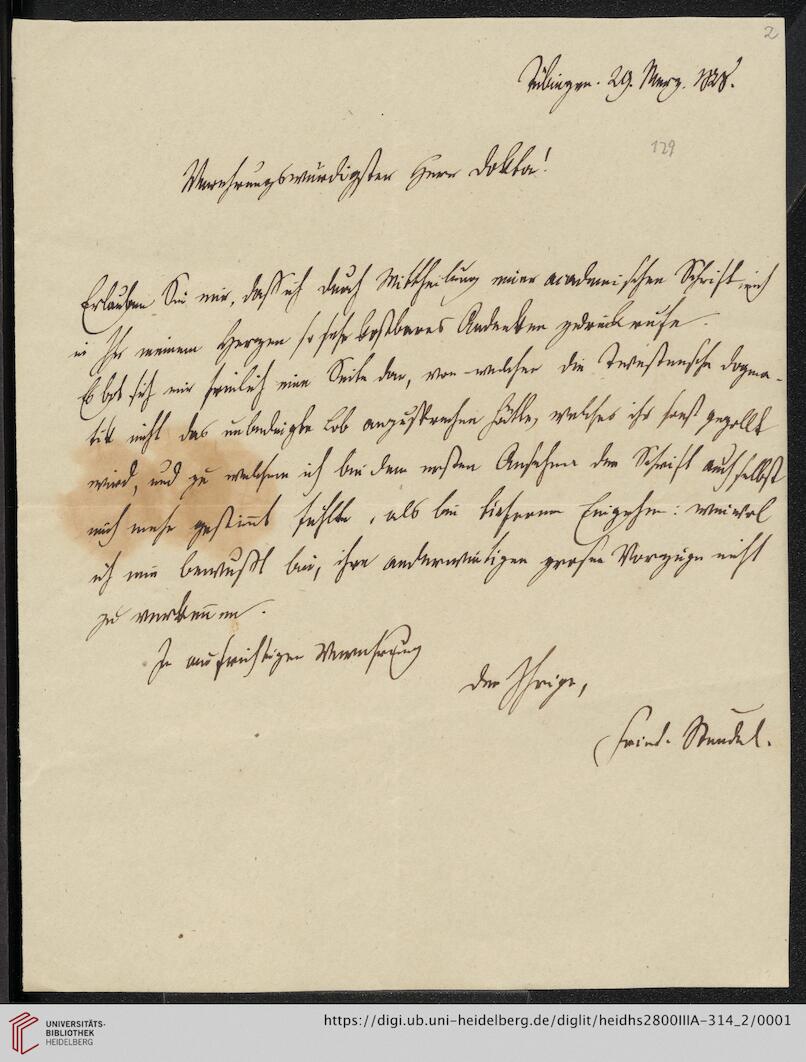 2
Tübingen. 29. Merz. 1828.
129
Verehrungswürdigster Herr Doktor!
Erlauben Sie mir, daß ich durch Mittheilung einer academischen Schrift mich
in Ihr meinem Herzen so sehr kostbares Andenken zurückrufe.
Es bot sich mir freilich eine Seite dar, von welcher die Twestensche Dogma-
tik nicht das unbedingte Lob anzusprechen hätte, welches ihr sonst gezollt
wird, und zu welchem ich bei dem ersten Ansehen der Schrift auch selbst
mich mehr gestimt fühlte, als bei tieferem Eingehen: wiewol
ich mir bewußt bin, ihre anderweitigen großen Vorzüge nicht
zu verkennen.
In aufrichtiger Verehrung
der Ihrige,
Fried. Steudel.
UNIVERSITÄTS-
BIBLIOTHEK
HEIDELBERG
https://digi.ub.uni-heidelberg.de/diglit/heidhs2800IIIA-314_2/0001